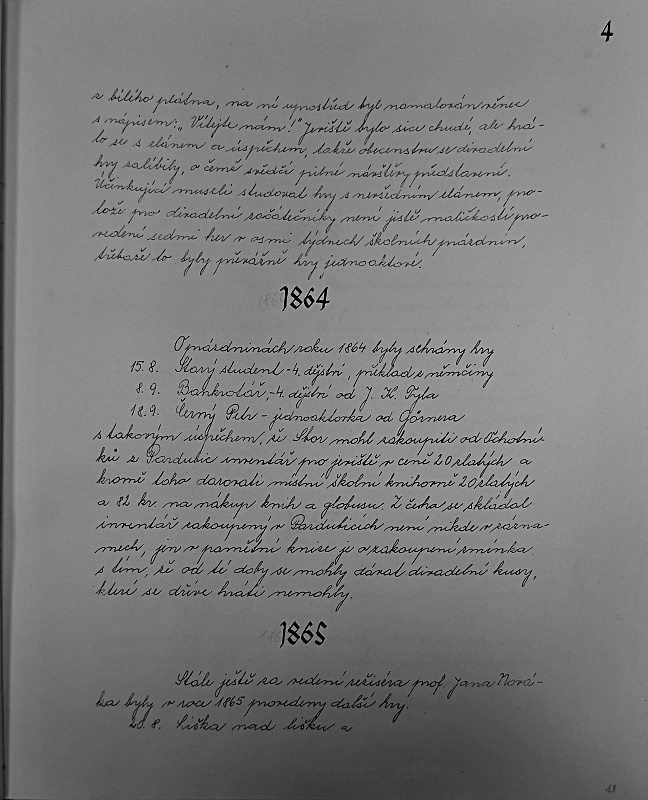 4
z bílého plátna, na ní uprostřed byl namalován věnec
s nápisem: „Vítejte nám!" Jeviště bylo sice chudé, ale hrá-
lo se s elánem a úspěchem, takže obecenstvu se divadelní
hry zalíbily, o čemž svědčí pilné návštěvy představení.
Účinkující museli studovat hry s nevšedním elánem, pro-
tože pro divadelní začátečníky není jistě maličkostí pro-
vedení sedmi her v osmi týdnech školních prázdnin,
třebaže to byly převážně hry jednoaktové.
1864
O prázdninách roku 1864 byly sehrány hry
15. 8. Starý student - 4. dějství, překlad z němčiny
8. 9. Bankrotář, - 4. dějství od J. K. Tyla
18. 9. Černý Petr - jednoaktovka od Görnera
s takovým úspěchem, že Sbor mohl zakoupiti od Ochotní-
ků z Pardubic inventář pro jeviště v ceně 20 zlatých a
kromě toho darovati místní školní knihovně 20 zlatých
a 82 kr. na nákup knih a globusu. Z čeho se skládal
inventář zakoupený v Pardubicích není nikde v zázna-
mech, jen v pamětní knize je o zakoupení zmínka
s tím, že od té doby se mohly dávat divadelní kusy,
které se dříve hráti nemohly.
1865
Stále ještě za vedení režiséra prof. Jana Nová-
ka byly v roce 1865 provedeny další hry.
20. 8. Liška nad lišku a
43